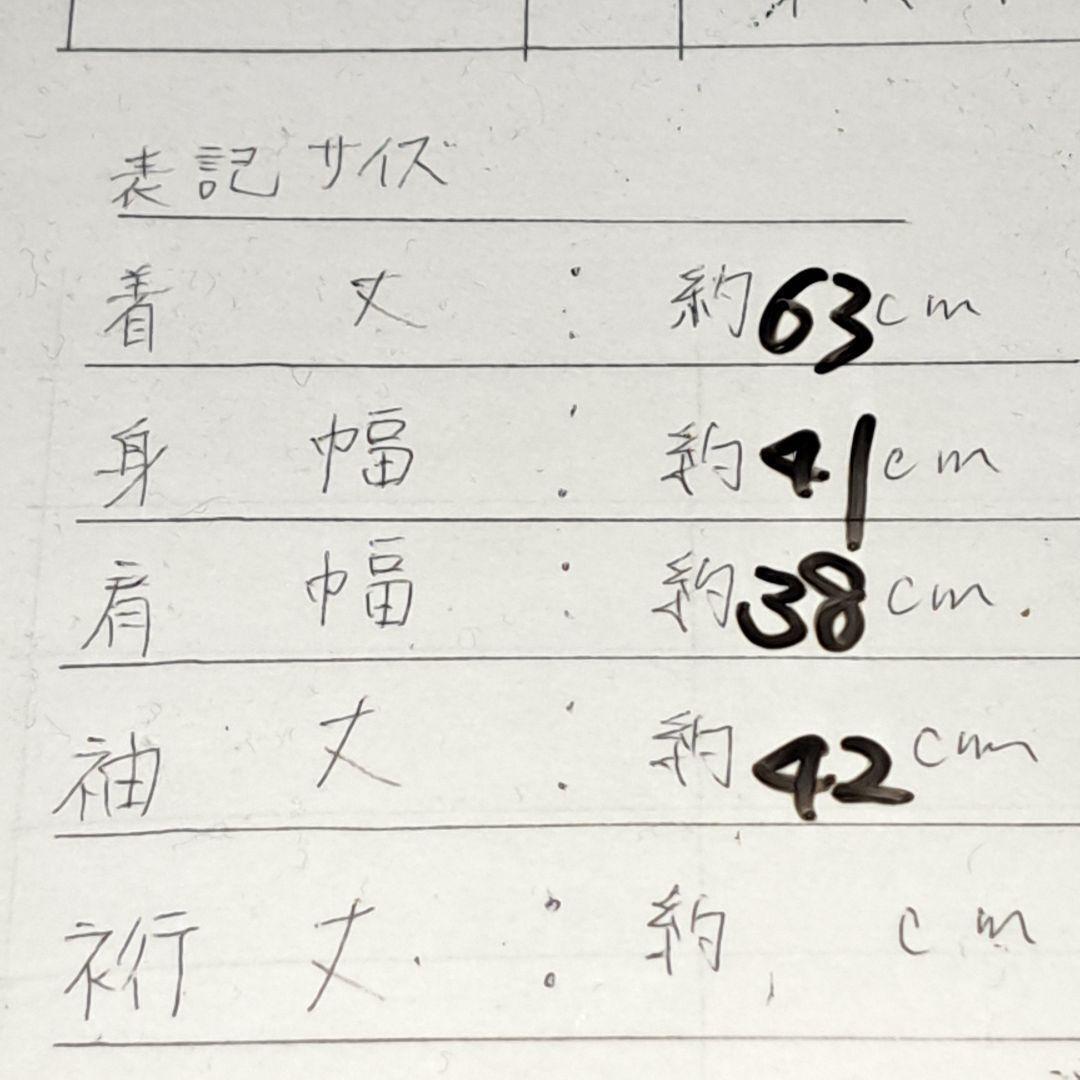 表記サイズ
着 丈 : 約63cm
身 幅 : 約41cm
肩 幅 : 約38cm
袖 丈 : 約42cm
裄 丈 : 約 cm